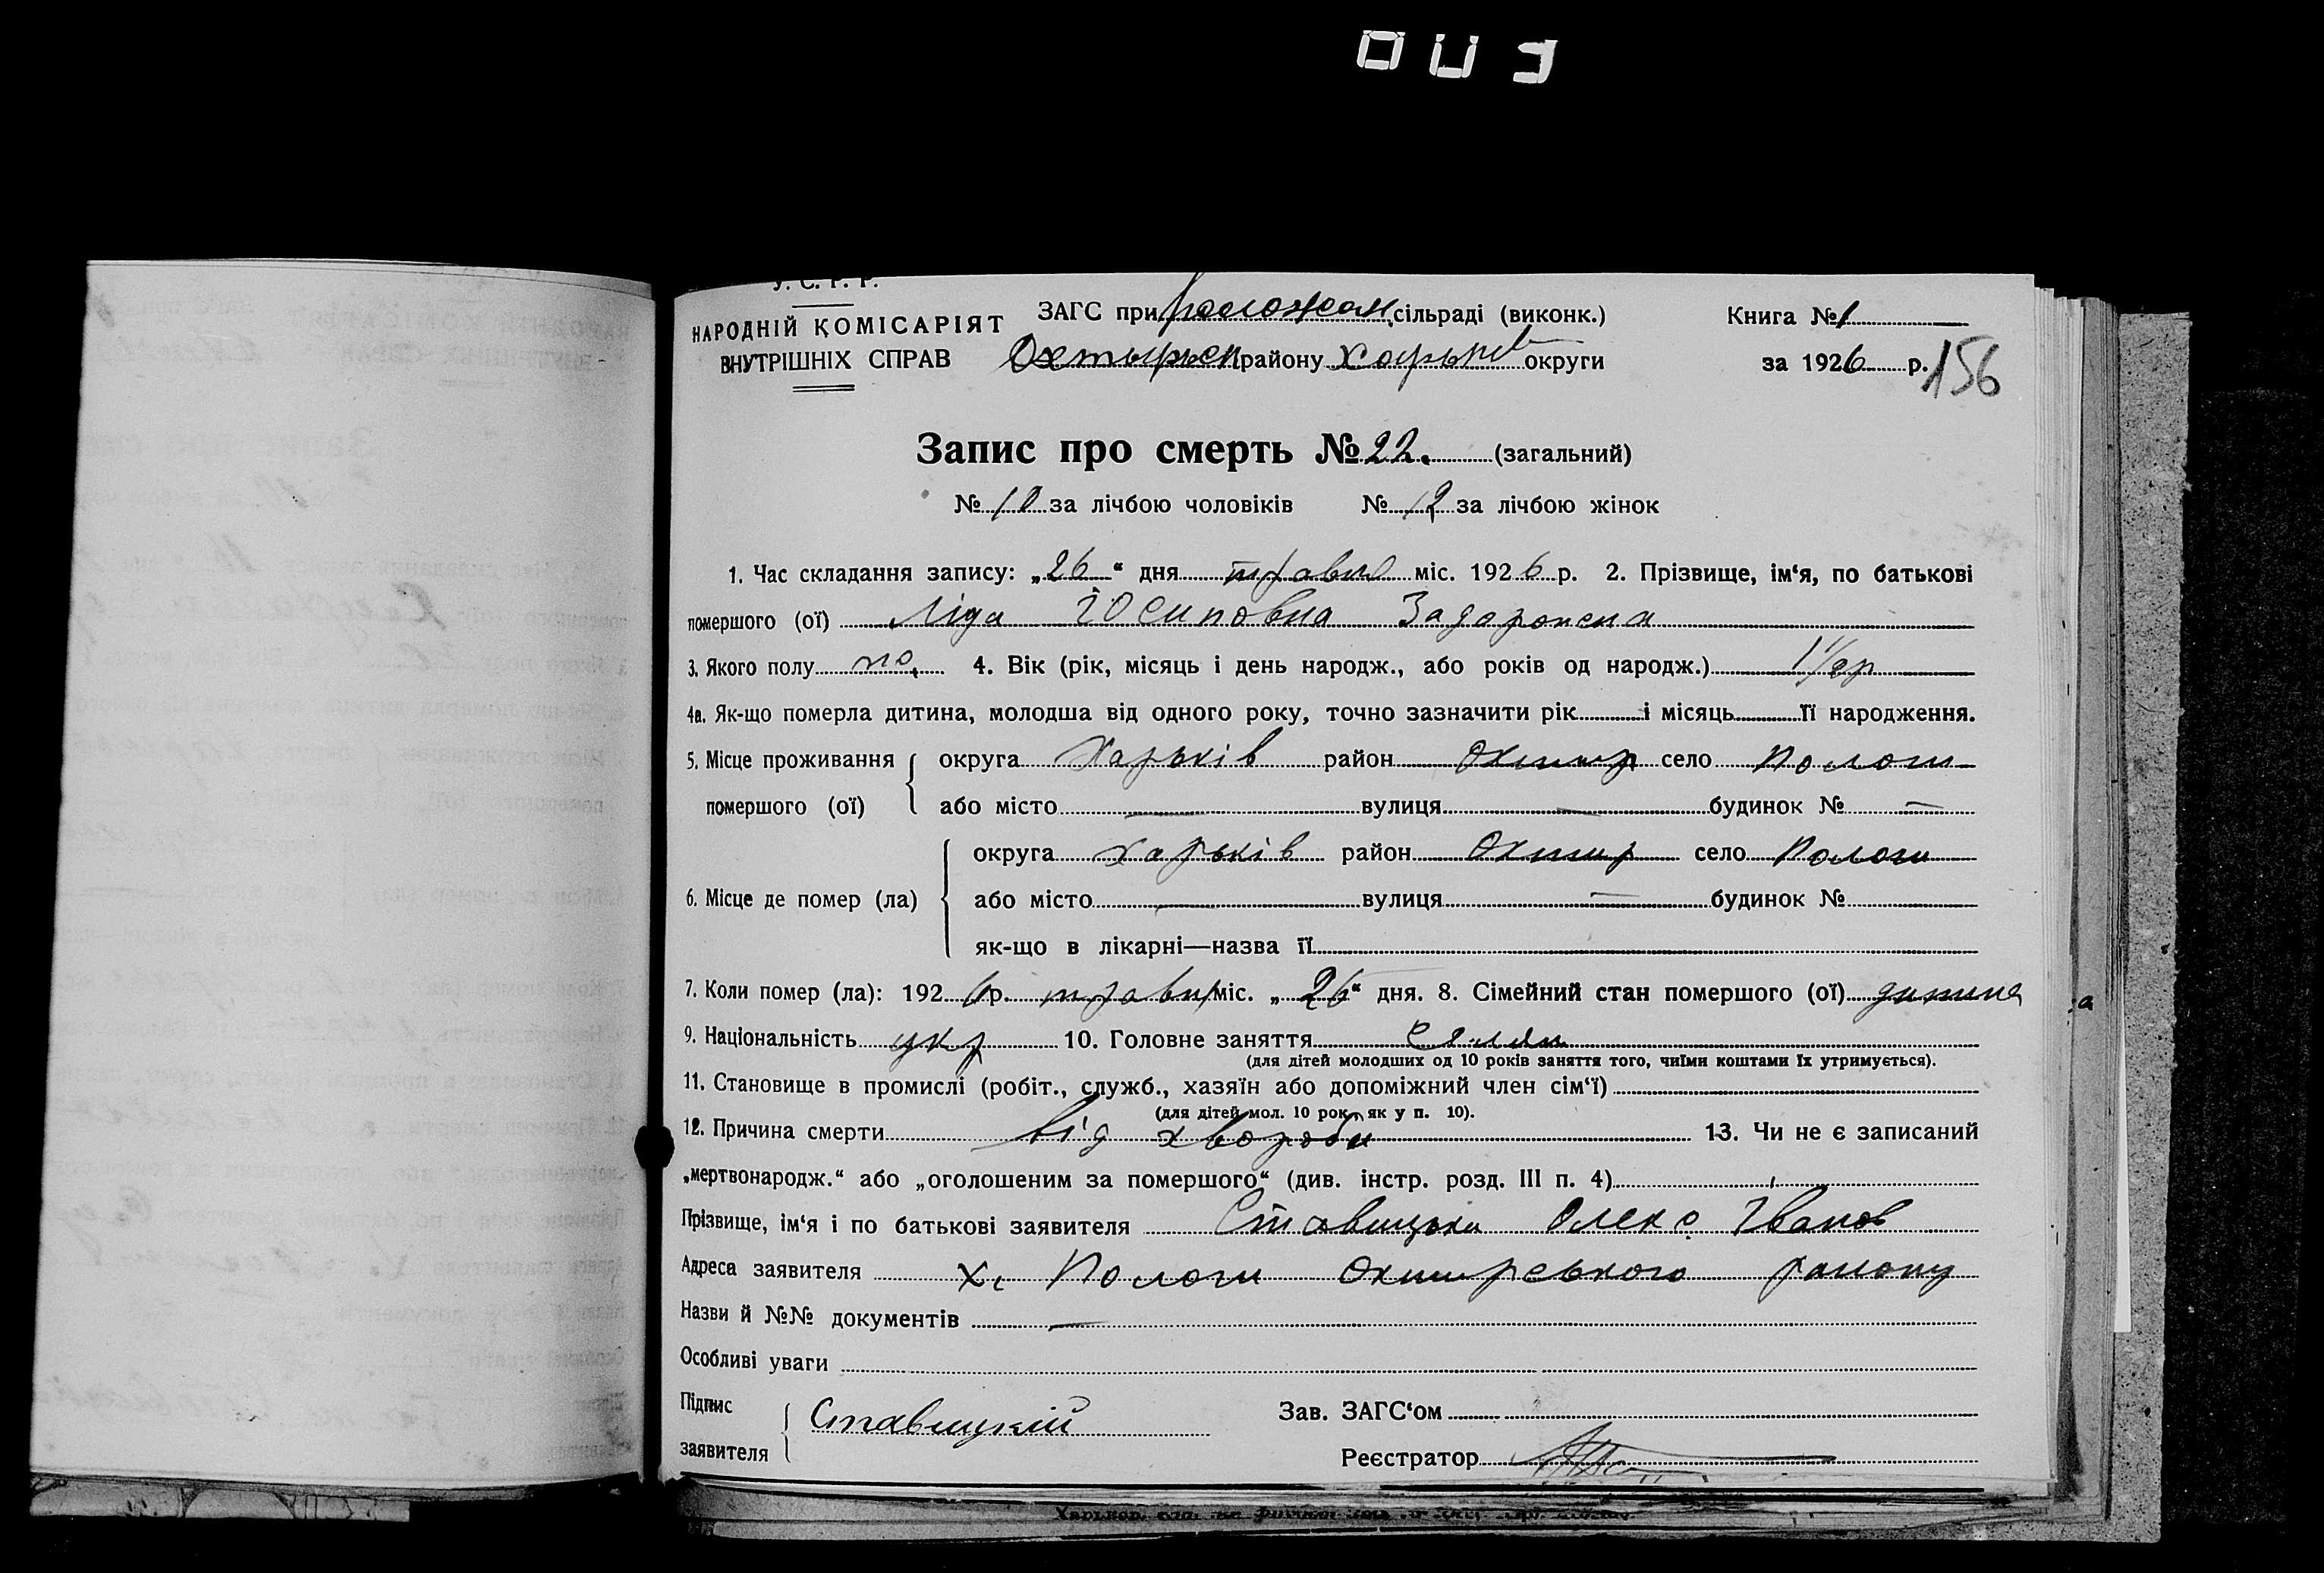 003
У. С. Р. Р.
НАРОДНІЙ КОМІСАРІЯТ ЗАГС при сільраді (виконк.) Книга № 1
ВНУТРІШНІХ СПРАВ району округи за 1926 р. 156
Запис про смерть № 22. (загальний)
№ 10 за лічбою чоловіків № 12 за лічбою жінок
1. Час складання запису: „26“ дня травня міс. 1926 р. 2. Прізвище, ім‘я, по батькові
помершого (ої) Ліда Йосиповна Задорожна
3. Якого полу 4. Вік (рік, місяць і день народж., або років од народж.) 1 1/2 р
4а. Як-що померла дитина, молодша від одного року, точно зазначити рік і місяць її народження.
5. Місце проживання округа Харьків район Охтир село Пологи
помершого (ої) або місто — вулиця — будинок № —
округа Харьків район Охтир село Пологи
6. Місце де помер (ла) або місто — вулиця — будинок №
як-що в лікарні—назва її
7. Коли помер (ла): 1926 р. травня міс. „26“ дня. 8. Сімейний стан помершого (ої) дитина
9. Національність укр 10. Головне заняття селян
(для дітей молодших од 10 років заняття того, чиїми коштами їх утримується).
11. Становище в промислі (робіт., служб., хазяїн або допоміжний член сім‘ї)
(для дітей мол. 10 рок., як у п. 10).
12. Причина смерти від хвороби 13. Чи не є записаний
„мертвонародж.“ або „оголошеним за помершого“ (див. інстр. розд. III п. 4)
Прізвище, ім‘я і по батькові заявителя Ставицьки Олекс Іванов
Адреса заявителя х. Пологи Охтирського району
Назви й №№ документів —
Особливі уваги
Підпис Ставицкій Зав. ЗАГС‘ом
заявителя Реєстратор